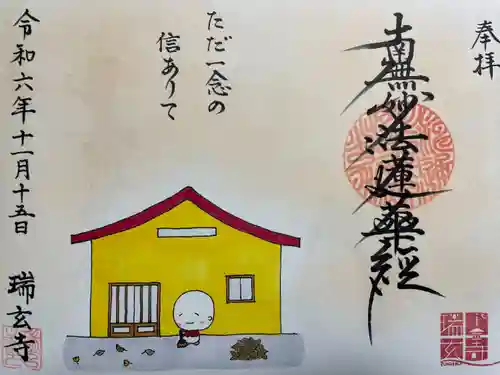 奉拝
南無妙法蓮華経
ただ一念の
信ありて
令和六年十一月十五日
瑞玄寺